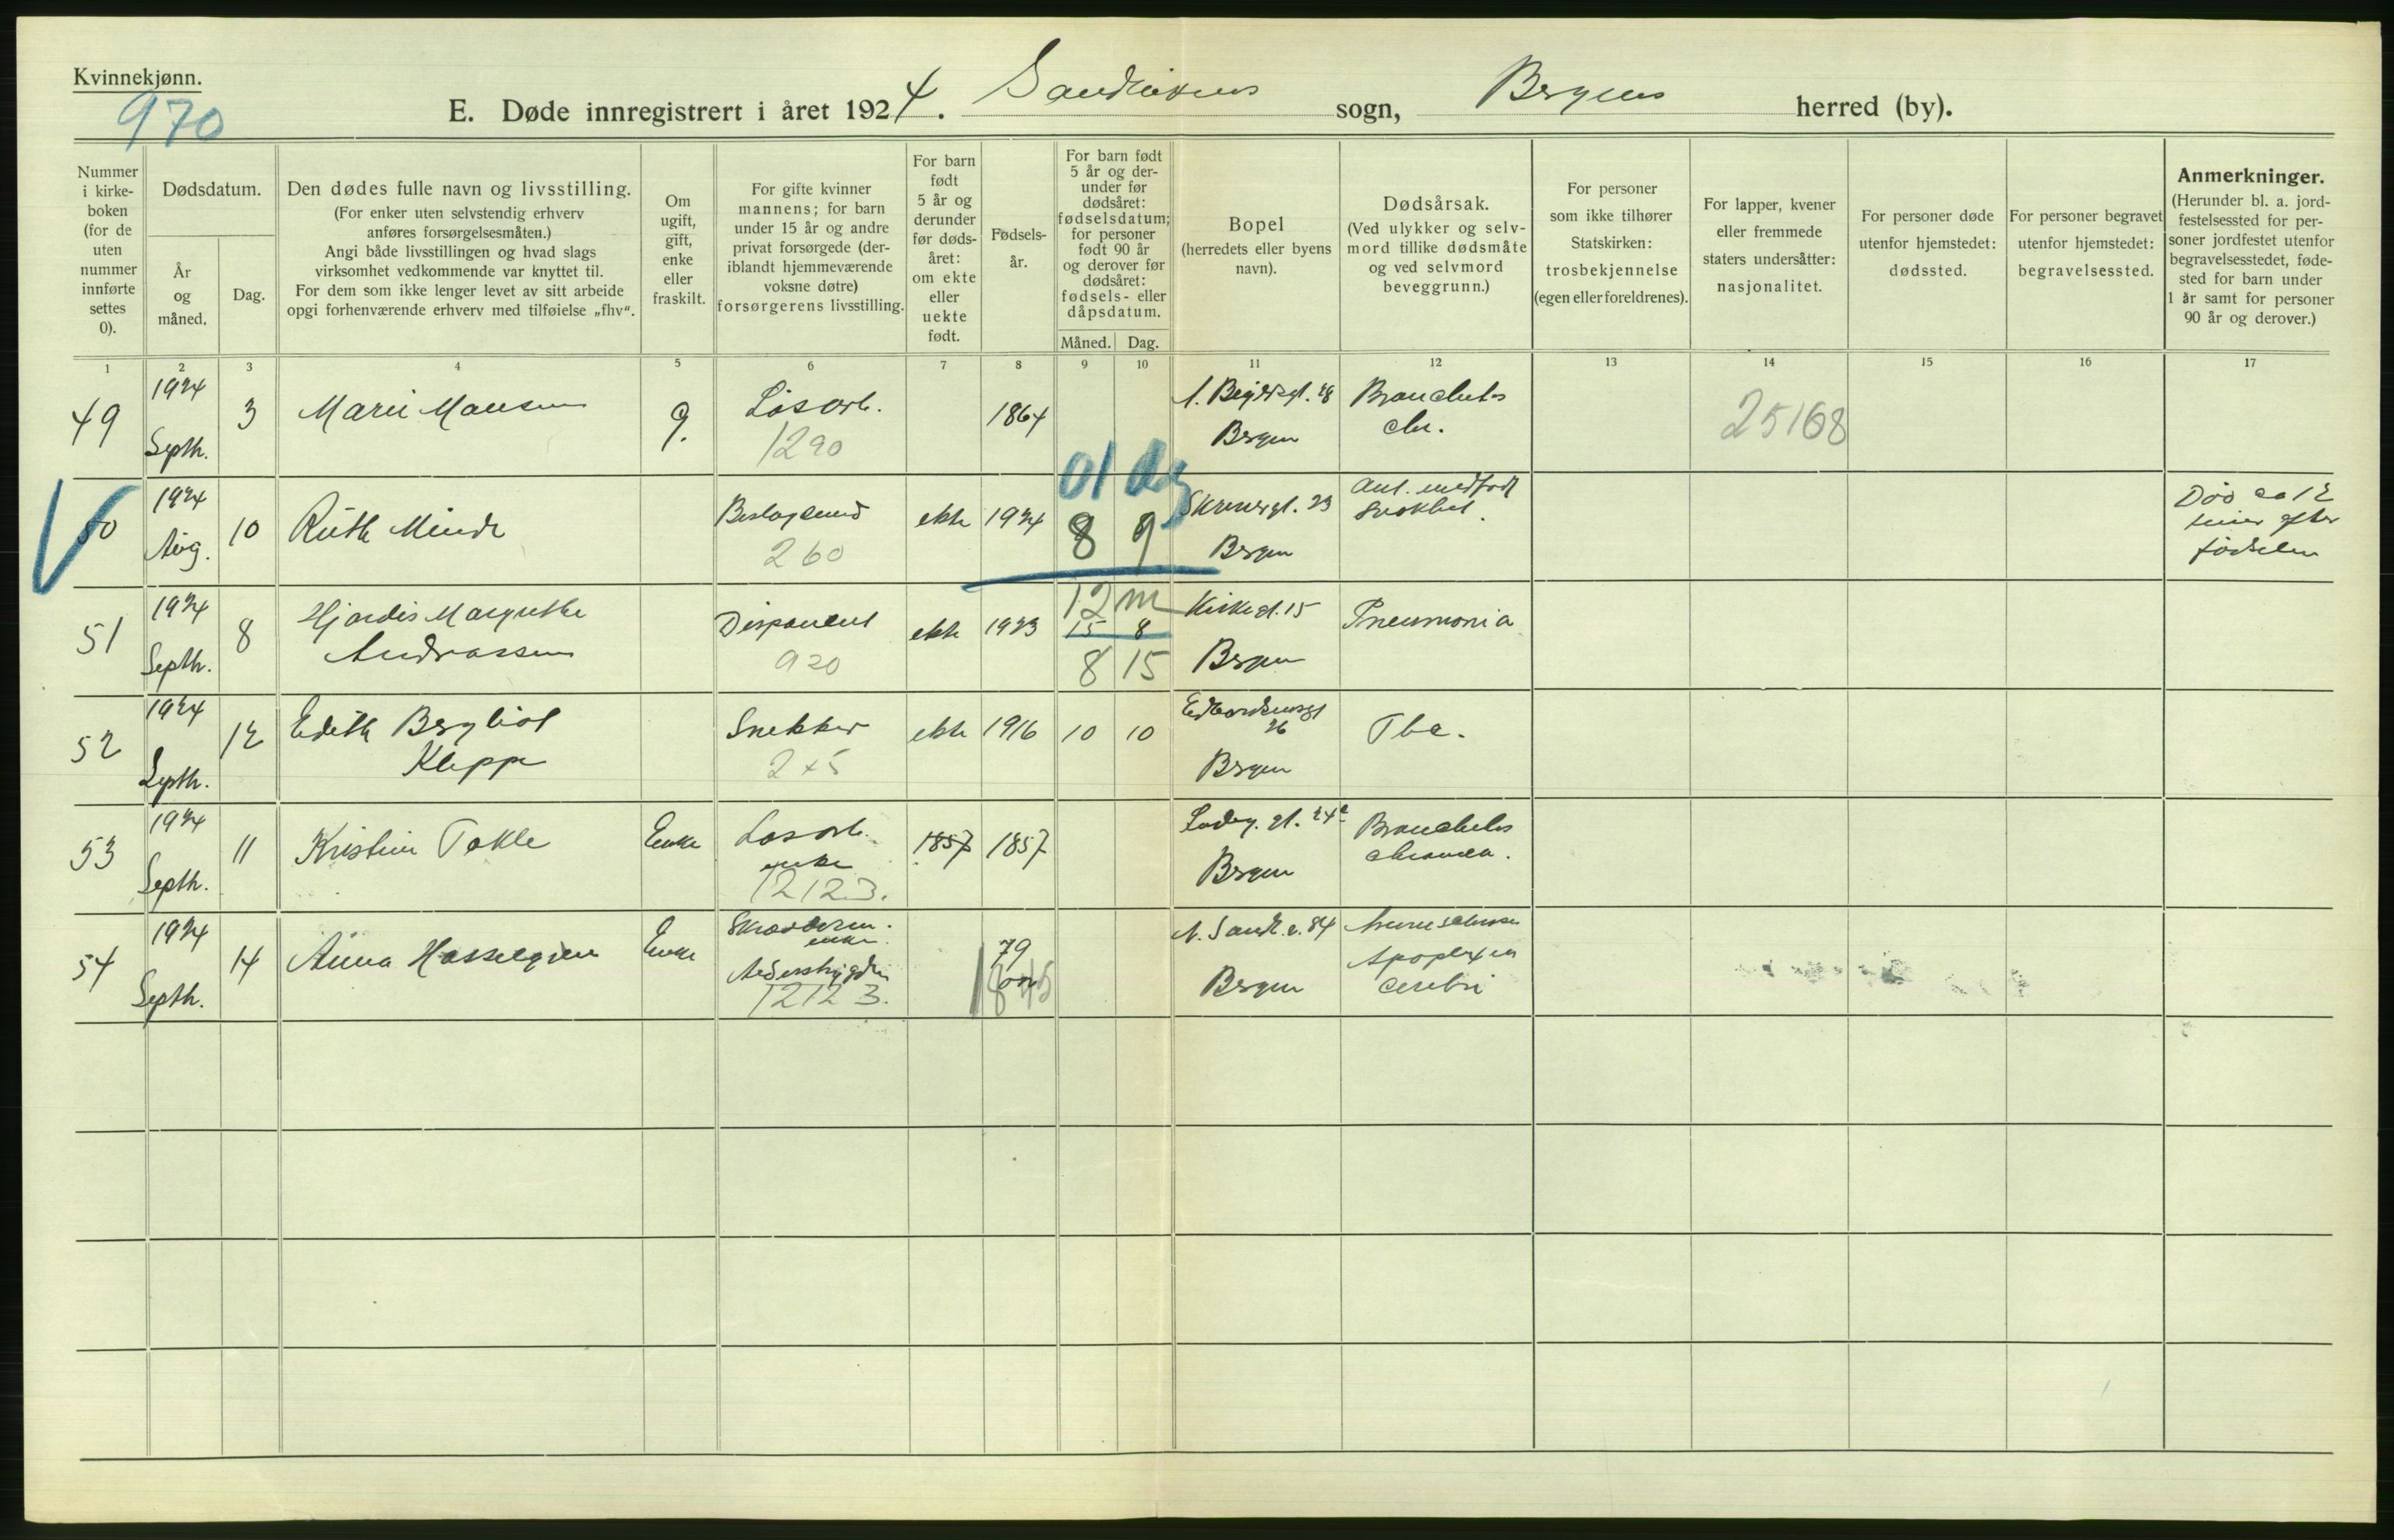 Kvinnekjønn.
970
E. Døde innregistrert i året 1924. Sandvikens sogn, Bergens herred (by).
Nummer
i kirke-
boken
(for de
uten
nummer
innførte
settes
0).
Dødsdatum.
År
og
måned.
Dag.
Den dødes fulle navn og livsstilling.
(For enker uten selvstendig erhverv
anføres forsørgelsesmåten.)
Angi både livsstillingen og hvad slags
virksomhet vedkommende var knyttet til.
For dem som ikke lenger levet av sitt arbeide
opgi forhenværende erhverv med tilføielse „fhv“.
Om
ugift,
gift,
enke
eller
fraskilt.
For gifte kvinner
mannens; for barn
under 15 år og andre
privat forsørgede (der-
iblandt hjemmeværende
voksne døtre)
forsørgerens livsstilling.
For barn
født
5 år og
derunder
før døds-
året:
om ekte
eller
uekte
født.
Fødsels-
år.
For barn født
5 år og der-
under før
dødsåret:
fødselsdatum;
for personer
født 90 år
og derover før
dødsåret:
fødsels- eller
dåpsdatum.
Måned. Dag.
Bopel
(herredets eller byens
navn).
Dødsårsak.
(Ved ulykker og selv-
mord tillike dødsmåte
og ved selvmord
beveggrunn.)
For personer
som ikke tilhører
Statskirken:
trosbekjennelse
(egen eller foreldrenes).
For lapper, kvener
eller fremmede
staters undersåtter:
nasjonalitet.
For personer døde
utenfor hjemstedet:
dødssted.
For personer begravet
utenfor hjemstedet:
begravelsessted.
Anmerkninger.
(Herunder bl. a. jord-
festelsessted for per-
soner jordfestet utenfor
begravelsesstedet, føde-
sted for barn under
1 år samt for personer
90 år og derover.)
1 2 3 4 5 6 7 8 9 10 11 12 13 14 15 16 17
49 1924 Septb. 3 Marie Monsen g. Løsarb. 1864 Bergen Bronchitis chr. 25168
1290
50 1924 Aug. 10 Ruth Minde ekte 1924 8 9 23 Bergen Ant. medfødt svakhet. Død ca 12 timer efter fødselen
260
01
51 1924 Septb. 8 Hjørdis Margrethe Andreassen Disponent ekte 1923 15 8 Kirkegt. 15 Bergen Pneumonia
920
12 m
8 15
52 1924 Septb. 12 Edith Bergliot Kleppe Snekker ekte 1916 10 10 Edvardsensgt 26 Bergen Tbc.
245
53 1924 Septb. 11 Kristine Takle Enke Løsarb. enke 1857 1857 Ladeg. gt. 24 Bergen Bronchitis chronica.
12123.
54 1924 Septb. 14 Anna Enke enke 79 1845 N. Sandv. v. 84 Bergen Apoplexia cerebri
12123.